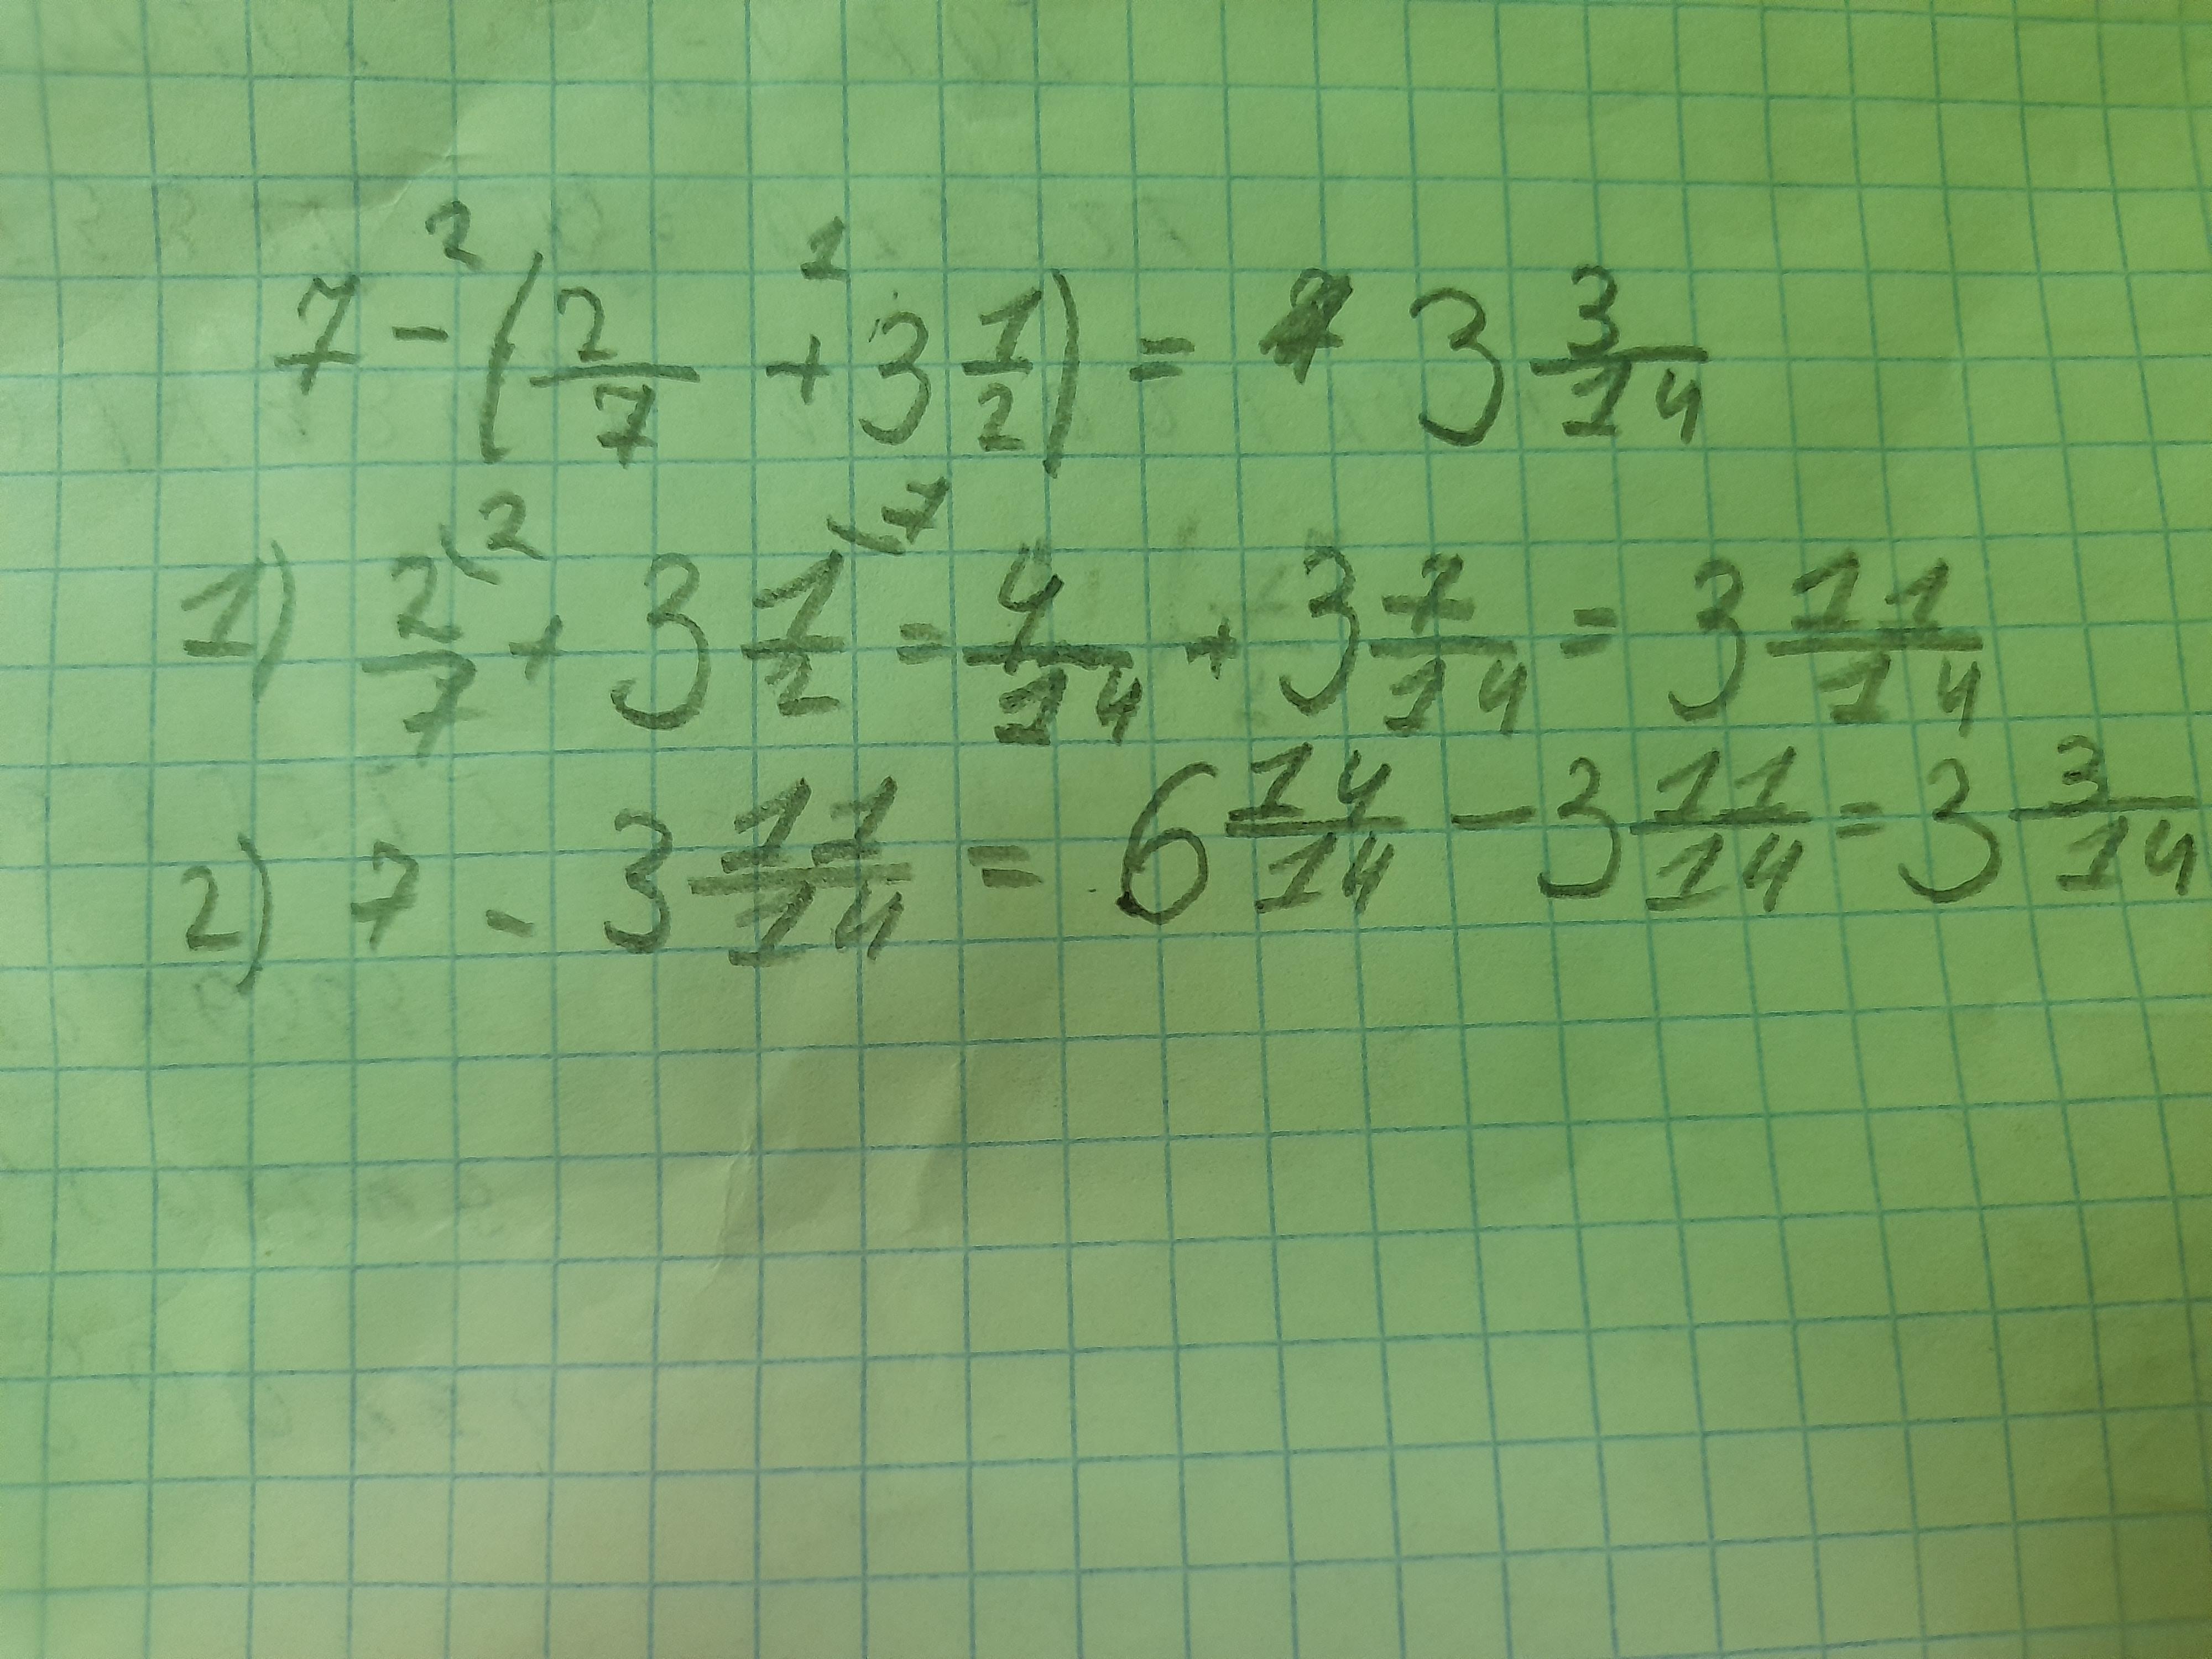 7 -² (2/7 +¹ 3 1/2) = 3 3/14
1) 2/7 \2 + 3 1/2 \7 = 4/14 + 3 7/14 = 3 11/14
2) 7 - 3 11/14 = 6 14/14 - 3 11/14 = 3 3/14